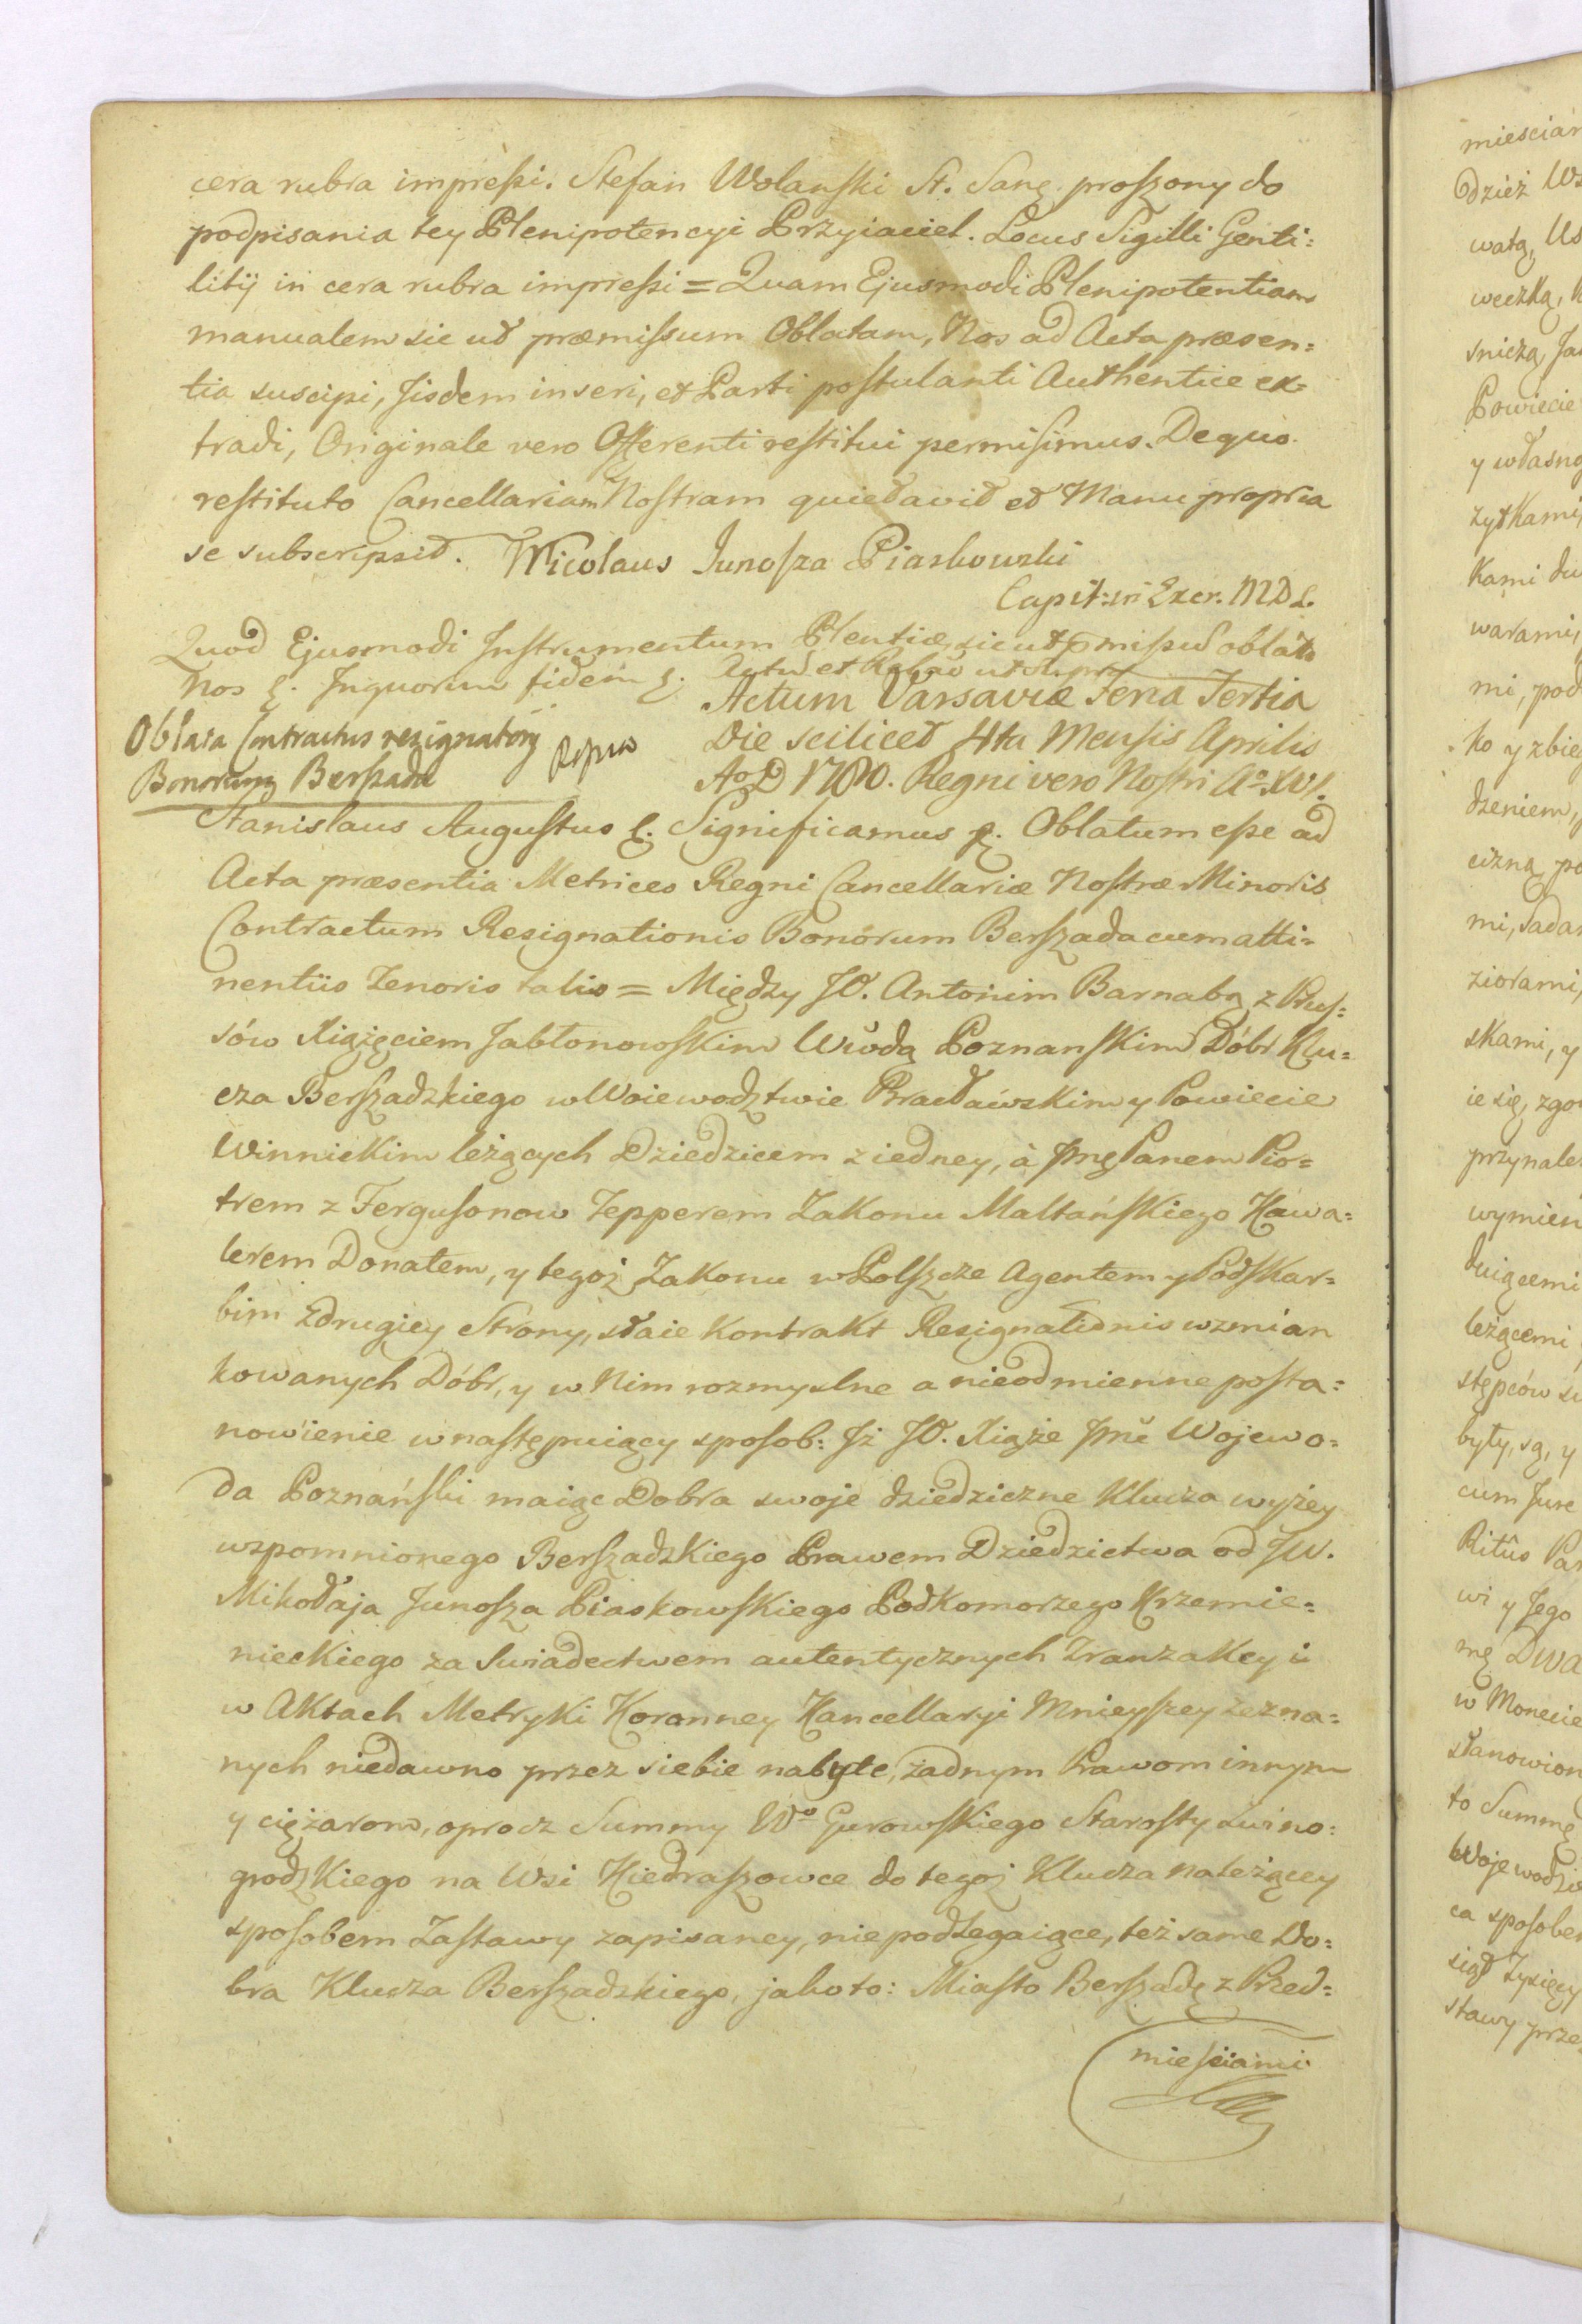 cera rubra impressi. Stefan Wolanski St. Sanę. proszony do
podpisania tey Plenipotencyi Przyiaciel. Locus Sigilli Genti=
litij in cera rubra impressi = Quam Ejusmodi Plenipotentiam
manualem sic ut præmissum Oblatam, Nos ad Acta præsen=
tia suscipi, Iisdem inseri, et Parti postulanti Authentice ex=
tradi, Originale vero Offerenti restitui permisimus. De quo
restituto Cancellariam Nostram quietavit et Manu propria
se subscripsit. Nicolaus Junosza Piaskowski
Capit: in Exer. MDL.
Quod Ejusmodi Instrumentum Plentiæ, sic ut pmissũ oblat
Nos &. Inquorum fidem &. Actũ et Datũ ut supra
Actum Varsaviæ Feria Tertia
Oblata Contractus resignatorÿ
Die scilicet 4ta Mensis Aprilis
Bonorum Berszada
Ao D 1780. Regni vero Nostri Ao XVI.
Stanislaus Augustus &. Significamus &. Oblatum esse ad
Acta præsentia Metrices Regni Cancellariæ Nostræ Minoris
Contractum Resignationis Bonorum Berszada cum atti=
nentiis Tenoris talis = Między JO. Antonim Barnabą z Prus=
sów Xiążęciem Jabłonowskim Wwdą Poznanskim Dóbr Klu=
cza Berszadzkiego w Woiewodztwie Bracławskim y Powiecie
Winnickim leżących Dziedzicem z iedney, à Jmę Panem Pio=
trem z Fergusonow Tepperem Zakonu Maltańskiego Kawa=
lerem Donatem, y tegoż Zakonu w Polszcze Agentem y Podskar=
bim z drugiey Strony, staie Kontrakt Resignationis wzmian
kowanych Dóbr, y w Nim rozmyslne a nieodmienne posta=
nowienie w następuiący sposob: Iż JO. Xiąże Jmć Wojewo=
da Poznański maiąc Dobra swoje dziedziczne Klucza wyżey
wspomnionego Berszadzkiego Prawem Dziedzictwa od JW.
Mikołaja Junosza Piaskowskiego Podkomorzego Krzemie=
nieckiego za Swiadectwem autentycznych Tranzakcyi
w Aktach Metryki Koronney Kancellaryi Mnieyszey zezna=
nych niedawno przez siebie nabyte, żadnym Prawom innym
y ciężarom, oprocz Summy Wo Gurowskiego Starosty Zwino=
grodzkiego na Wsi Kiedraszowce do tegoż Klucza należącey
sposobem Zastawy zapisaney, niepodlegaiące, też same Do=
bra Klucza Berszadzkiego, jako to: Miasto Berszadę z Przed=
mieściami